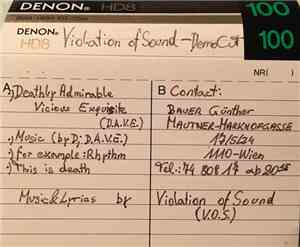 DENON® HD8 100
DENON® HD8 Violation of Sound - DemoCut 100
NR( )
A
1) Deathly Admirable
Vicious Exquisite
(D.A.V.E.)
2) Music (by Dj D.A.V.E.)
3) for example: Rhythm
4) This is death
Music & Lyrics by
B Contact:
BAUER Günther
MAUTNER-MARKHOFGASSE
17/5/24
1110-Wien
Tel.: 74 808 17 ab 20
Violation of Sound
(V.O.S)